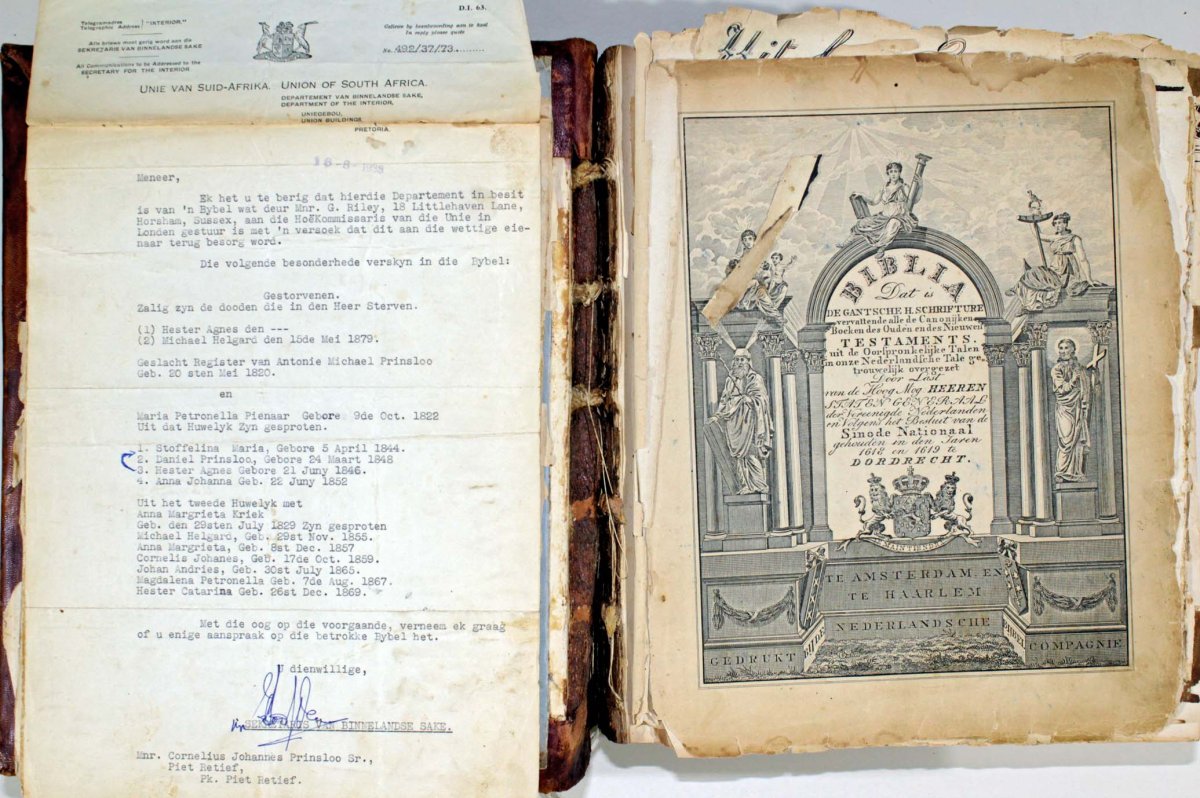 D.I. 63.
Telegramadres
Telegraphic Address } "INTERIOR."
Alle briewe moet gerig word aan die
SEKRETARIS VAN BINNELANDSE SAKE
All Communications to be Addressed to the
SECRETARY FOR THE INTERIOR
Geliewe by beantwoording aan te haal
In reply please quote
No. 492/37/73.........
UNIE VAN SUID-AFRIKA. UNION OF SOUTH AFRICA.
DEPARTEMENT VAN BINNELANDSE SAKE,
DEPARTMENT OF THE INTERIOR,
UNIEGEBOU,
UNION BUILDINGS,
PRETORIA.
Meneer,
Ek het u te berig dat hierdie Departement in besit
is van 'n Bybel wat deur Mnr. G. Riley, 18 Littlehaven Lane,
Horsham, Sussex, aan die Hoë Kommissaris van die Unie in
Londen gestuur is met 'n versoek dat dit aan die wettige eie-
naar terug besorg word.
Die volgende besonderhede verskyn in die Bybel:
Gestorvenen.
Zalig zyn de dooden die in den Heer Sterven.
(1) Hester Agnes den ---
(2) Michael Helgard den 15de Mei 1879.
Geslacht Register van Antonie Michael Prinsloo
Geb. 20 sten Mei 1820.
en
Maria Petronella Pienaar Gebore 9de Oct. 1822
Uit dat Huwelyk Zyn gesproten.
1. Stoffelina Maria, Gebore 5 April 1844.
2. Daniel Prinsloo, Gebore 24 Maart 1848
3. Hester Agnes Gebore 21 Juny 1846.
4. Anna Johanna Geb. 22 Juny 1852
Uit het tweede Huwelyk met
Anna Margrieta Kriek
Geb. den 29sten July 1829 Zyn gesproten
Michael Helgard, Geb. 29st Nov. 1855.
Anna Margrieta, Geb. 8st Dec. 1857
Cornelis Johanes, Geb. 17de Oct. 1859.
Johan Andries, Geb. 30st July 1865.
Magdalena Petronella Geb. 7de Aug. 1867.
Hester Catarina Geb. 26st Dec. 1869.
Met die oog op die voorgaande, verneem ek graag
of u enige aanspraak op die betrokke Bybel het.
U dienwillige,
SEKRETARIS VAN BINNELANDSE SAKE.
Mnr. Cornelius Johannes Prinsloo Sr.,
Piet Retief,
Pk. Piet Retief.
BIBLIA
Dat is
DE GANTSCHE H. SCHRIFTURE
vervattende alle de Canonijken
Boeken des Ouden en des Nieuwen
TESTAMENTS.
uit de Oorspronkelijke Talen
in onze Nederlandsche Tale ge,
trouwelijk overgezet
Door Last
van de Hoog Mog HEEREN
STATEN GENERAAL
der Vereenigde Nederlanden
en Volgens het Besluit van de
Sinode Nationaal
gehouden in den Jaren
1618 en 1619 te
DORDRECHT.
TE AMSTERDAM, EN
TE HAARLEM
GEDRUKT
NEDERLANDSCHE
COMPAGNIE